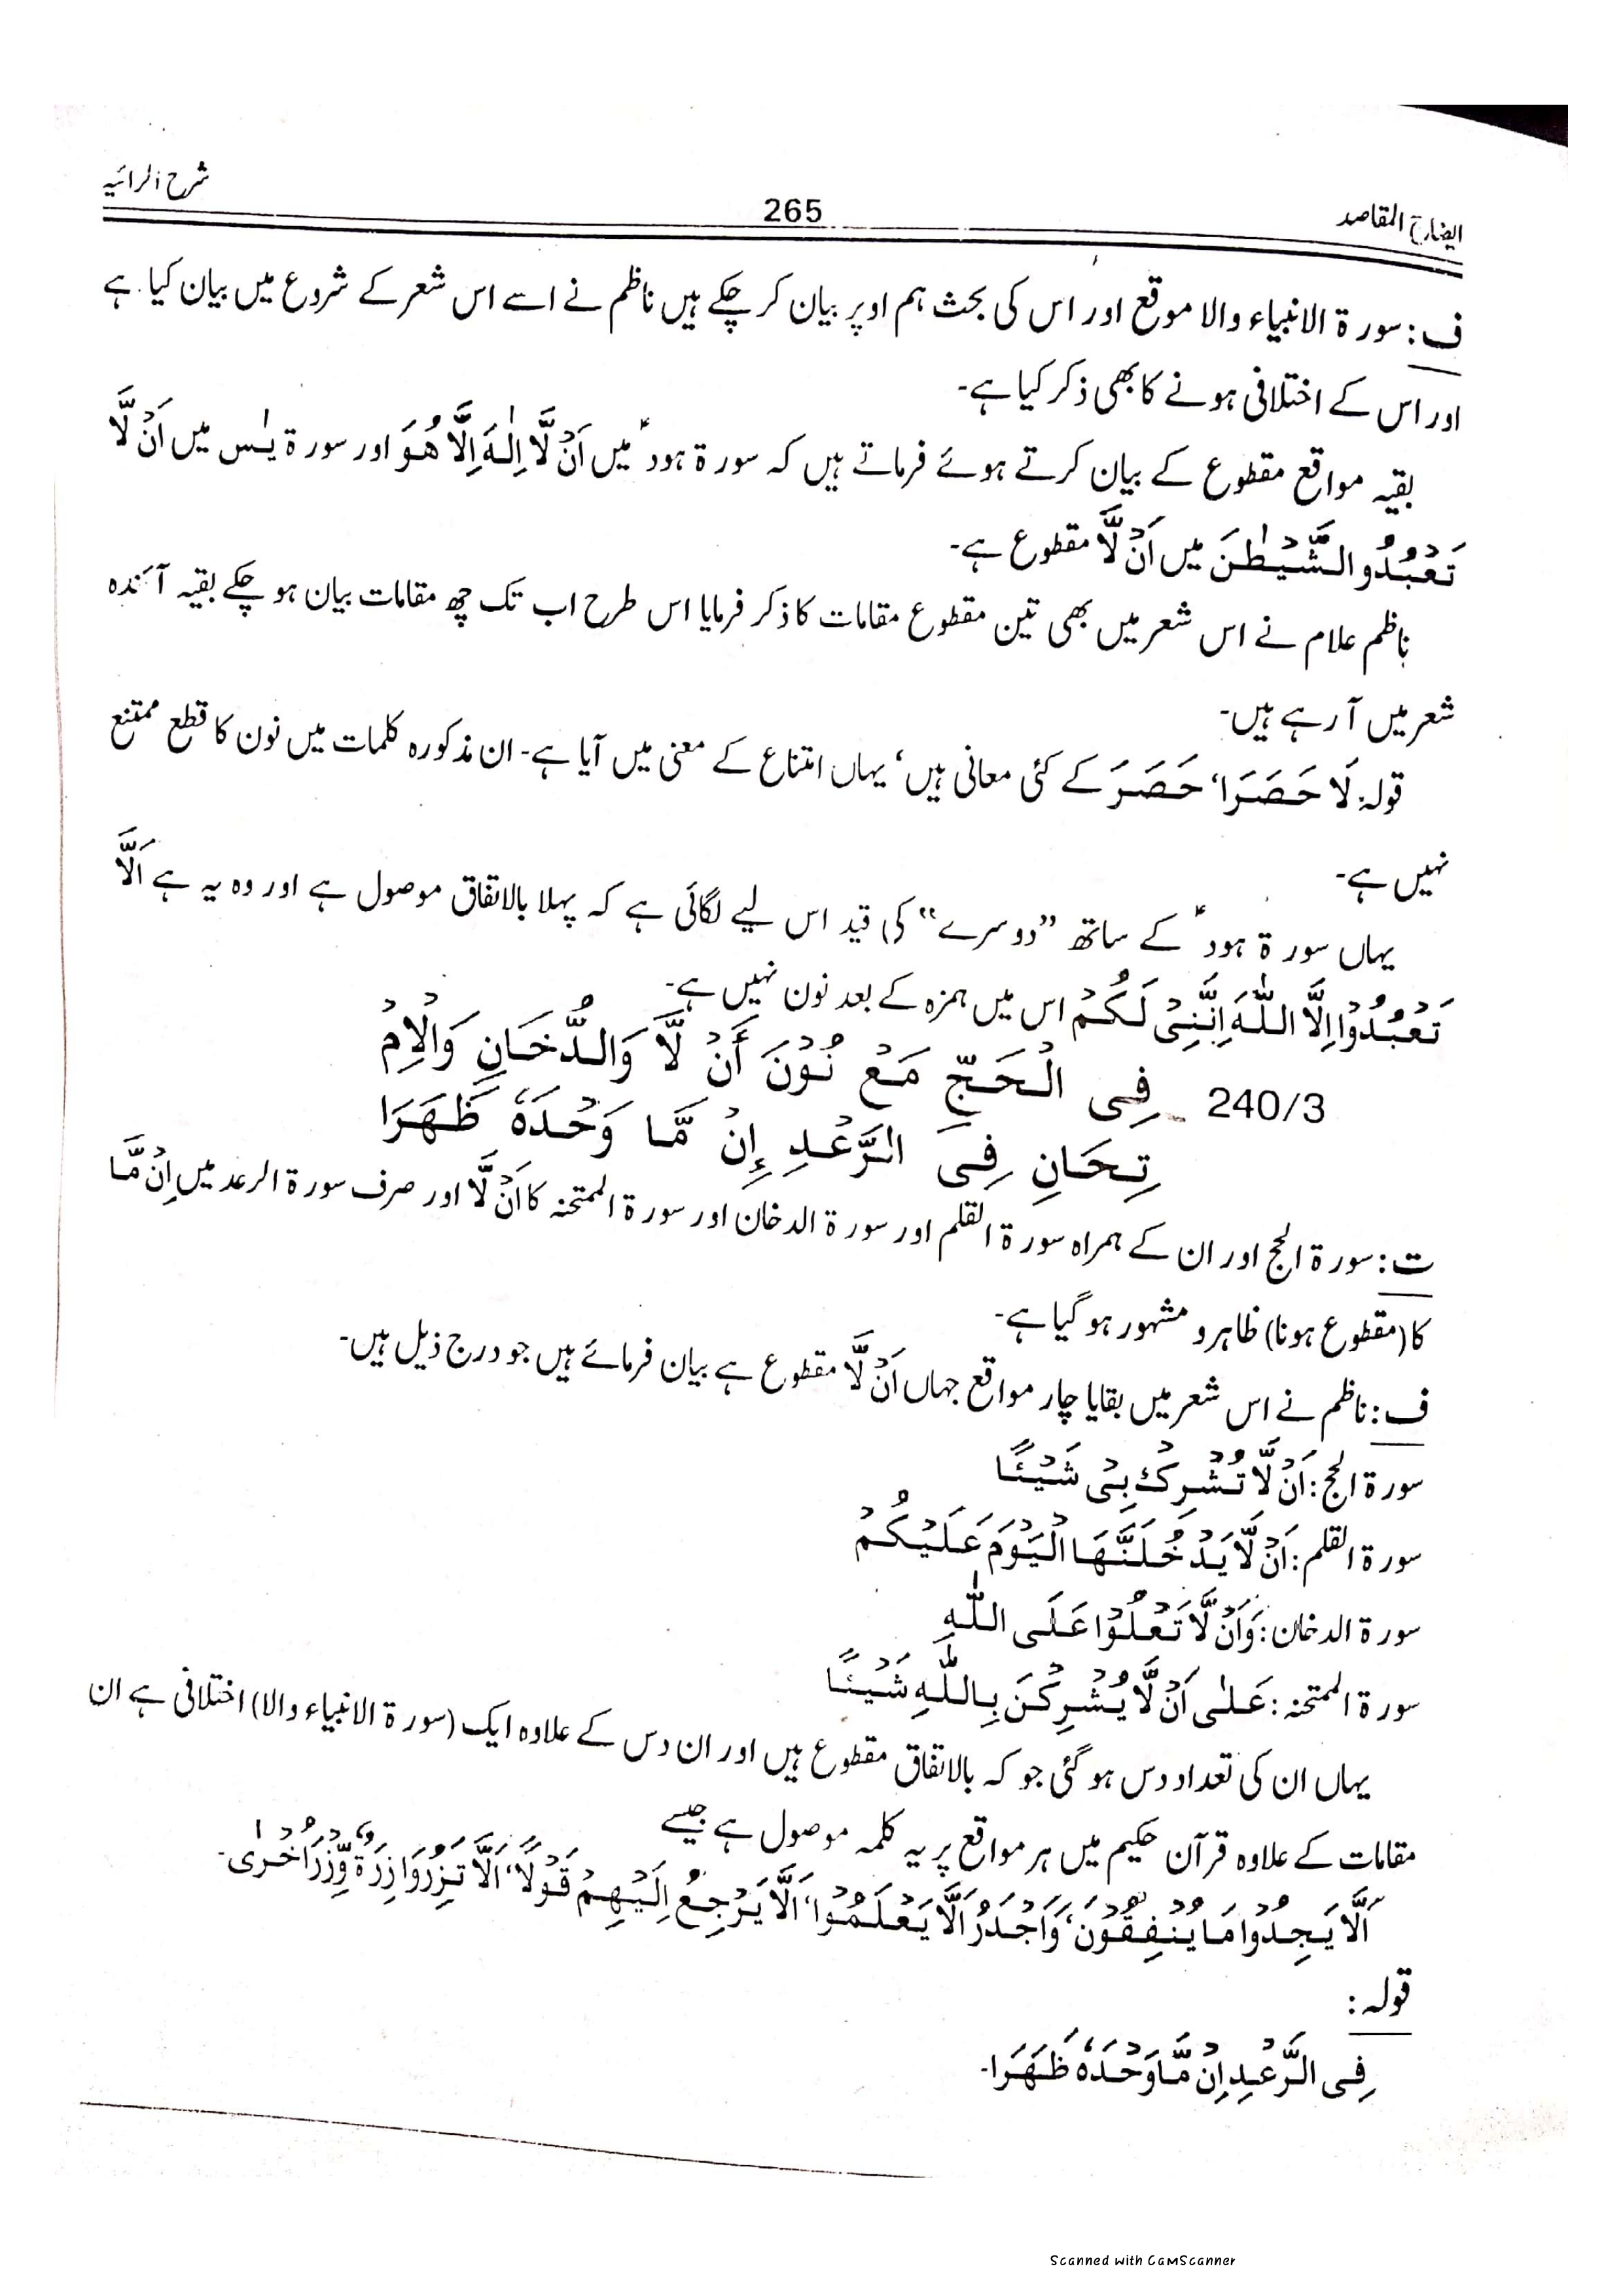 شرح الرائیہ
265
ایضاح المقاصد
ف: سورۃ الانبیاء والا موقع اور اس کی بحث ہم اوپر بیان کر چکے ہیں ناظم نے اسے اس شعر کے شروع میں بیان کیا ہے
اور اس کے اختلافی ہونے کا بھی ذکر کیا ہے۔
بقیہ مواقع مقطوع کے بیان کرتے ہوئے فرماتے ہیں کہ سورۃ ہودؑ میں اَنْ لَّا اِلٰہَ اِلَّا ھُوَ اور سورۃ یٰس میں اَنْ لَّا
تَعْبُدُو الشَّیْطٰنَ میں اَنْ لَّا مقطوع ہے۔
ناظم علام نے اس شعر میں بھی تین مقطوع مقامات کا ذکر فرمایا اس طرح اب تک چھ مقامات بیان ہو چکے بقیہ آئندہ
شعر میں آ رہے ہیں۔
قولہ: لَا حَصَرَا، حَصَرَ کے کئی معانی ہیں، یہاں امتناع کے معنی میں آیا ہے۔ ان مذکورہ کلمات میں نون کا قطع ممتنع
نہیں ہے۔
یہاں سورۃ ہودؑ کے ساتھ "دوسرے" کی قید اس لیے لگائی ہے کہ پہلا بالاتفاق موصول ہے اور وہ یہ ہے اَلَّا
تَعْبُدُوْا اِلَّا اللّٰہَ اِنَّنِیْ لَکُمْ اس میں ہمزہ کے بعد نون نہیں ہے۔
240/3 ـ فِی الْحَجِّ مَعْ نُوْنَ أَنْ لَّا وَالدُّخَانِ وَالْاِمْ
تِحَانِ فِی الرَّعْدِ إِنْ مَّا وَحْدَہٗ ظَھَرَا
ت: سورۃ الحج اور ان کے ہمراہ سورۃ القلم اور سورۃ الدخان اور سورۃ الممتحنہ کا اَنْ لَّا اور صرف سورۃ الرعد میں اِنْ مَّا
کا (مقطوع ہونا) ظاہر و مشہور ہو گیا ہے۔
ف: ناظم نے اس شعر میں بقایا چار مواقع جہاں اَنْ لَّا مقطوع ہے بیان فرمائے ہیں جو درج ذیل ہیں۔
سورۃ الحج: اَنْ لَّا تُشْرِکْ بِیْ شَیْئًا
سورۃ القلم: اَنْ لَّا یَدْخُلَنَّھَا الْیَوْمَ عَلَیْکُمْ
سورۃ الدخان: وَاَنْ لَّا تَعْلُوْا عَلَی اللّٰہِ
سورۃ الممتحنہ: عَلٰی اَنْ لَّا یُشْرِکْنَ بِاللّٰہِ شَیْئًا
یہاں ان کی تعداد دس ہو گئی جو کہ بالاتفاق مقطوع ہیں اور ان دس کے علاوہ ایک (سورۃ الانبیاء والا) اختلافی ہے ان
مقامات کے علاوہ قرآن حکیم میں ہر مواقع پر یہ کلمہ موصول ہے جیسے
اَلَّا یَجِدُوْا مَا یُنْفِقُوْنَ، وَاَجْدَرُ اَلَّا یَعْلَمُوْا، اَلَّا یَرْجِعُ اِلَیْھِمْ قَوْلًا، اَلَّا تَزِرُ وَازِرَۃٌ وِّزْرَ اُخْرٰی۔
قولہ:
فِی الرَّعْدِ اِنْ مَّا وَحْدَہٗ ظَھَرَا۔
Scanned with CamScanner